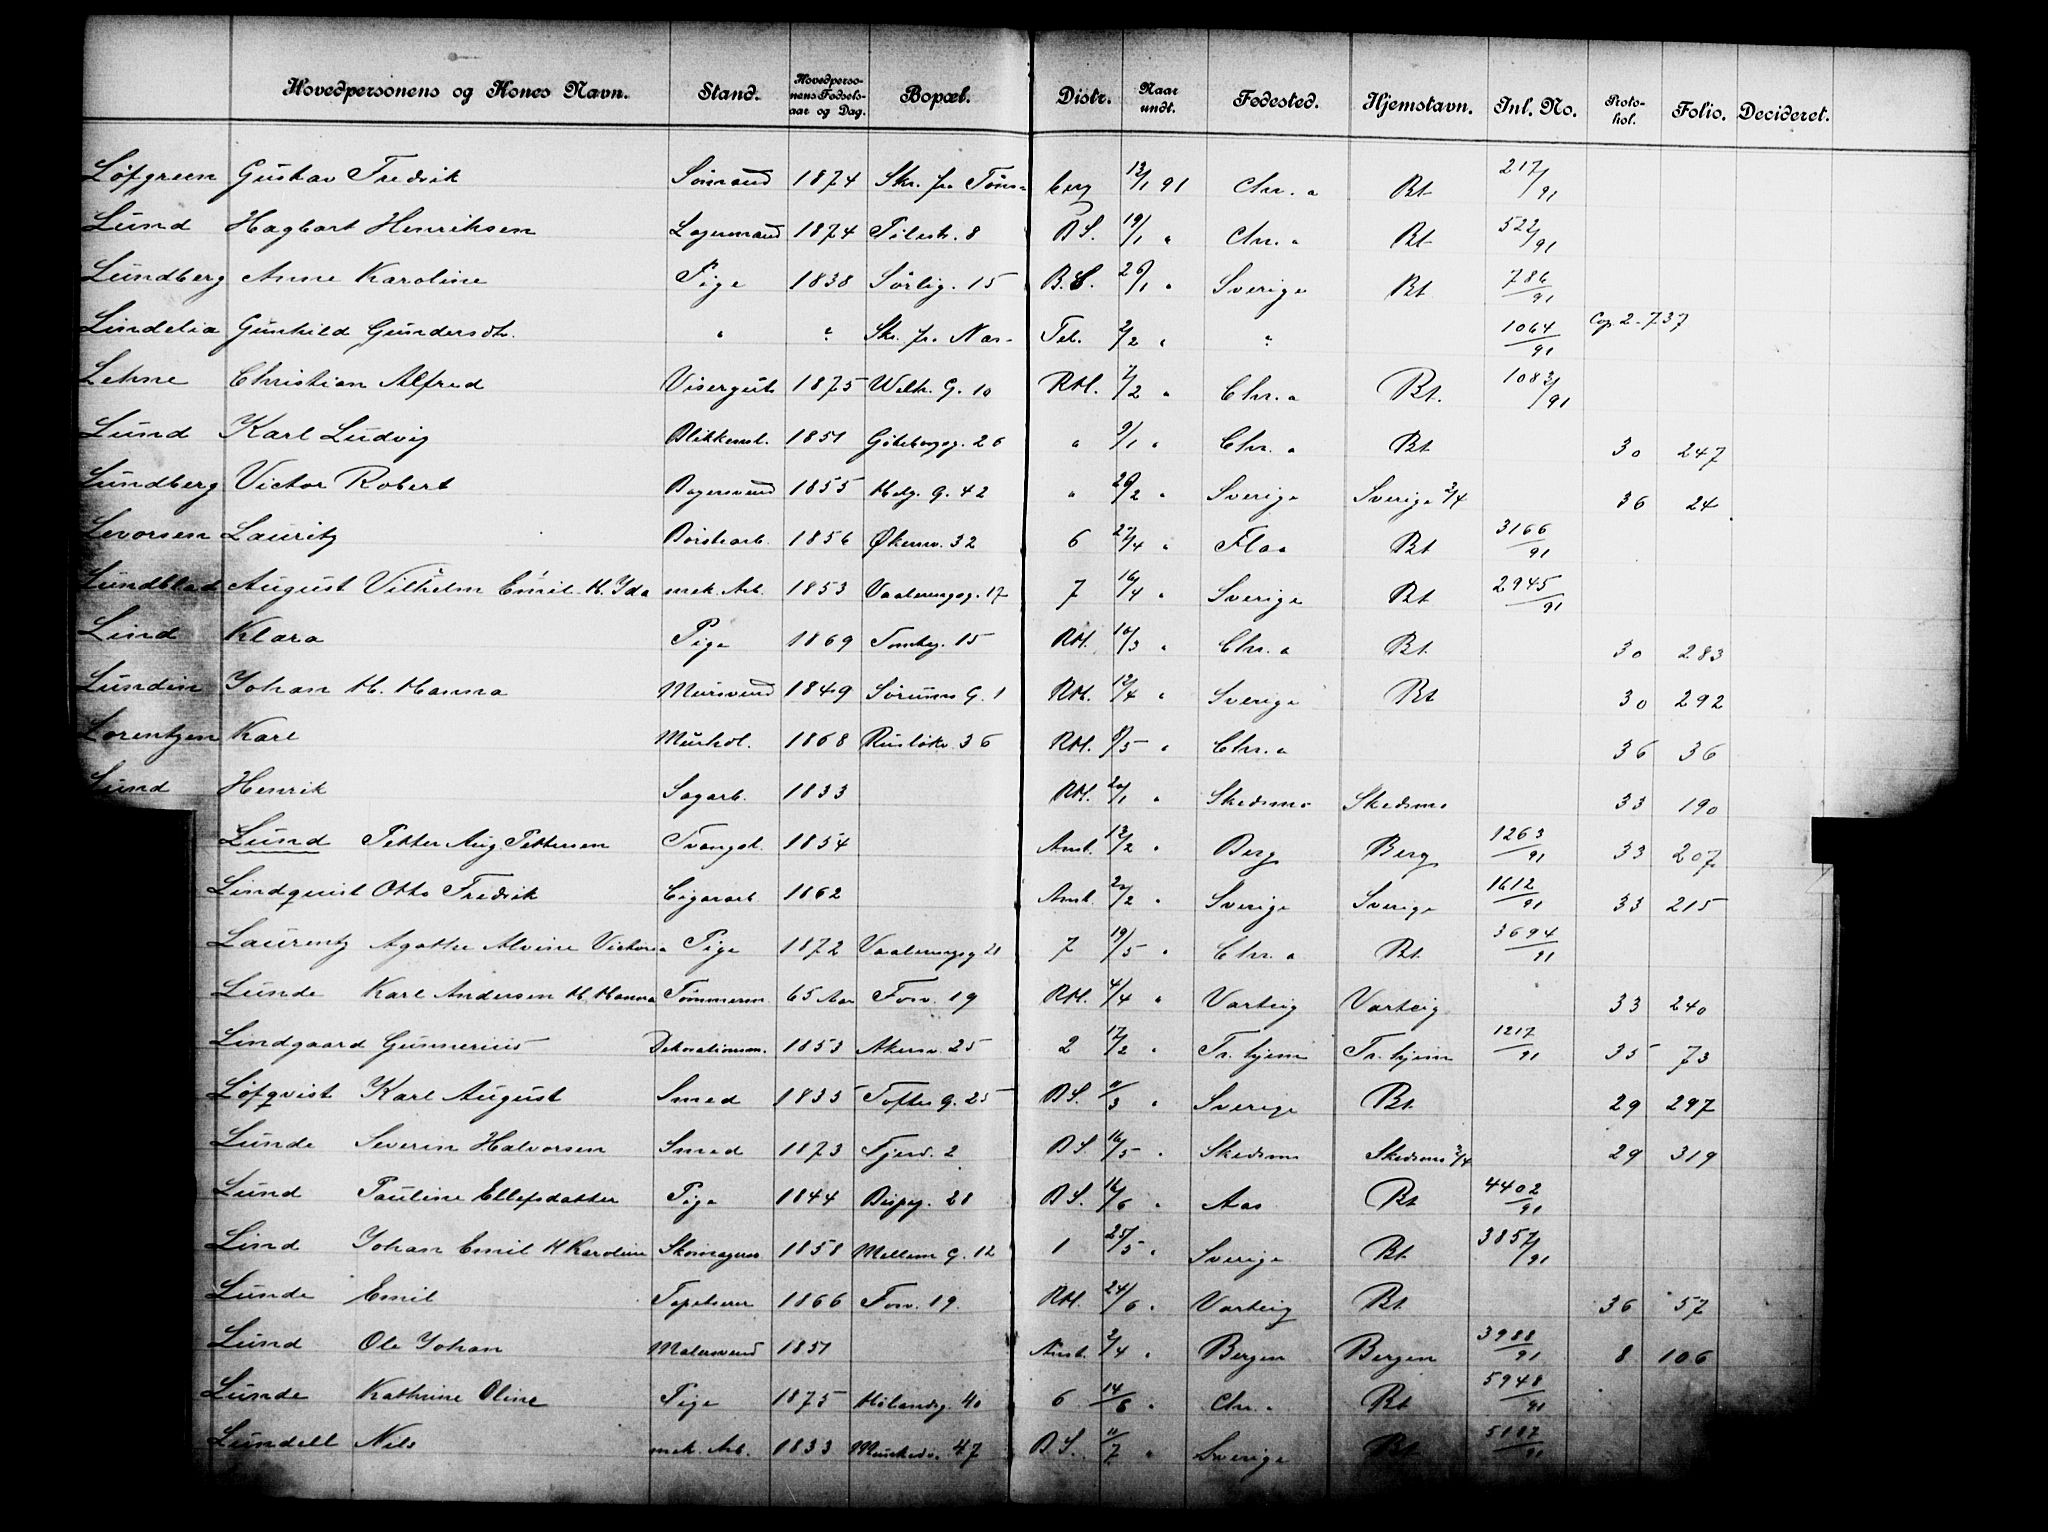 Hovedpersonens og Kones Navn. Stand. Hovedpersonens Fødselsaar og Dag. Bopæl. Distr. Naar undt. Fødested. Hjemstavn. Inl. No. Protokol. Folio. Decideret.
Løfgreen Gustav Fredrik Sømand 1874 Skr. fra Tønsberg 12/1 91 Chr.a Bt 217/91
Lund Hagbart Henriksen Lagermand 1874 8 B S. 19/1 " Chr.a Bt 522/91
Lundberg Anne Karoline Pige 1838 Sørlig. 15 B.S. 26/1 " Sverige Bt 786/91
Lindelia Gunhild Gundersdt. " " Skr. fra Nas- Tel. 2/2 " " 1064/91 Cop. 2-737
Lehne Christian Alfred Visergut 1875 Welh. G. 10 RM. 2/2 " Chr.a Bt. 1083/91
Lund Karl Ludvig Blikkensl. 1851 Göteborgg. 26 " 9/1 " Chr.a Bt 30 247
Lundberg Victor Robert Bagersvend 1855 Helg. G. 42 " 26/2 " Sverige Sverige 2/4 36 24
Levorsen Lauritz Børstearb. 1856 Økernv. 32 6 27/4 " Flaa Bt 3166/91
Lundblad August Vilhelm Emil H. Ida mek. Arb. 1853 Vaalerengg. 17 7 16/4 " Sverige Bt 2945/91
Lind Klara Pige 1869 Tomteg. 15 RM. 10/3 " Chr.a Bt. 30 283
Lundin Johan H. Hanna Mursvend 1849 Sørums G. 1 RM. 12/4 " Sverige Bt 30 292
Lorentzen Karl Murhdl. 1868 Rusløkv. 36 RM. 8/5 " Chr.a 36 36
Lund Henrik Sagarb. 1833 RM. 20/1 " Skedsmo Skedsmo 33 190
Lund Petter Aug. Pettersen Tvangsl. 1854 Anst. 12/2 " Berg Berg 1263/91 33 207
Lindquist Otto Fredrik Cigararb. 1862 Anst. 22/2 " Sverige Sverige 1612/91 33 215
Laurentz Agathe Alvine Victoria Pige 1872 Vaalerengg 21 7 19/5 " Chr.a Bt 3694/91
Lunde Karl Andersen H. Hanna Tømmerm. 65 Aar Fosv. 19 RM. 4/4 " Varteig Varteig 33 240
Lindgaard Gunnerius Dekorationsm. 1853 Akersv. 25 2 17/2 " Tr.hjem Tr.hjem 1217/91 35 73
Løfqvist Karl August Smed 1835 Tofte g. 25 B S. 11/3 " Sverige Bt. 29 297
Lunde Severin Halvorsen Smed 1873 Fjerd. 2 B S. 16/5 " Skedsmo Skedsmo 2/4 29 319
Lund Pauline Ellefsdatter Pige 1844 Bispeg. 28 B S. 16/6 " Aas Bt 4402/91
Lind Johan Emil H Karoline Skomager 1858 Mellem G. 12 1 25/5 " Sverige Bt 3857/91
Lunde Emil Tapetserer 1866 Fosv. 19. RM. 24/6 " Varteig Bt 36 57
Lund Ole Johan Malersvend 1851 Anst. 2/4 " Bergen Bergen 3988/91 8 106
Lunde Kathrine Oline Pige 1875 Hølandsg. 40 6 14/6 " Chr.a Bt 5948/91
Lundell Nils mek. Arb. 1833 Munkedv. 47 B S. 11/7 " Sverige Bt 5187/91